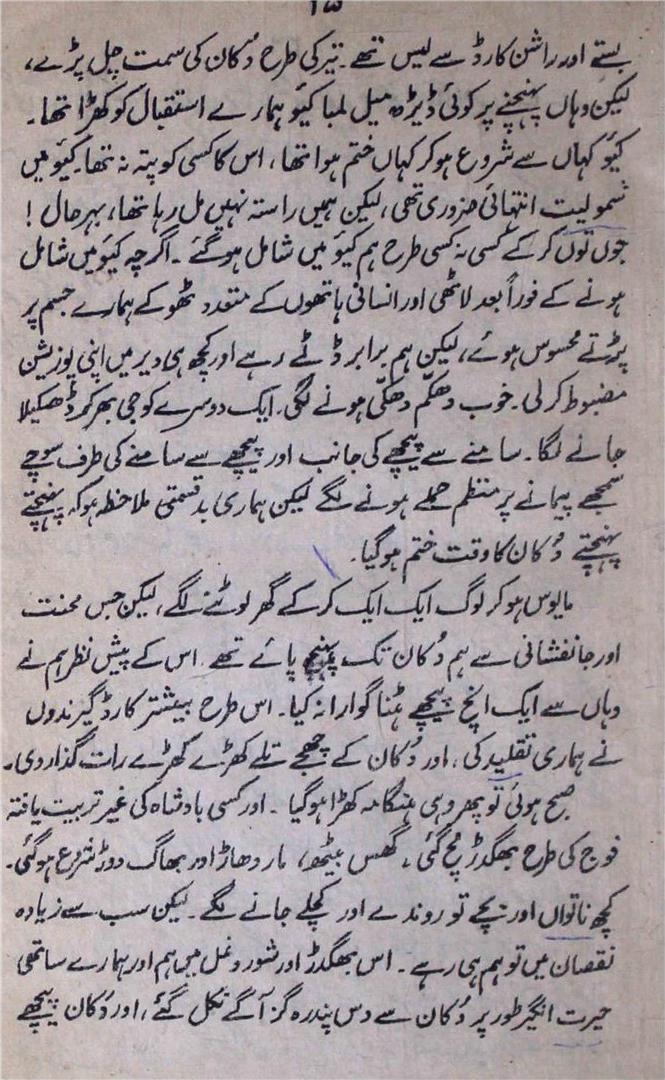 ۱۵
بستے اور راشن کارڈ سے لیس تھے۔ تیر کی طرح دُکان کی سمت چل پڑے،
لیکن وہاں پہنچنے پر کوئی ڈیڑھ میل لمبا کیو ہمارے استقبال کو کھڑا تھا۔
کیو کہاں سے شروع ہو کر کہاں ختم ہوا تھا، اس کا کسی کو پتہ نہ تھا۔ کیو میں
شمولیت انتہائی ضروری تھی، لیکن ہمیں راستہ نہیں مل رہا تھا، بہرحال!
جوں توں کر کے کسی نہ کسی طرح ہم کیو میں شامل ہو گئے۔ اگرچہ کیو میں شامل
ہونے کے فوراً بعد لاٹھی اور انسانی ہاتھوں کے متعدد ٹھوکے ہمارے جسم پر
پڑتے محسوس ہوئے، لیکن ہم برابر ڈٹے رہے اور کچھ ہی دیر میں اپنی پوزیشن
مضبوط کر لی۔ خوب دھکّم دھکّی ہونے لگی۔ ایک دوسرے کو جی بھر کر ڈھکیلا
جانے لگا۔ سامنے سے پیچھے کی جانب اور پیچھے سے سامنے کی طرف سوچے
سمجھے پیمانے پر منظم حملے ہونے لگے لیکن ہماری بدقسمتی ملاحظہ ہو کہ پہنچتے
پہنچتے دُکان کا وقت ختم ہو گیا۔
مایوس ہو کر لوگ ایک ایک کر کے گھر لوٹنے لگے، لیکن جس محنت
اور جانفشانی سے ہم دُکان تک پہنچ پائے تھے اس کے پیش نظر ہم نے
وہاں سے ایک انچ پیچھے ہٹنا گوارا نہ کیا۔ اس طرح بیشتر کارڈ گیرندوں
نے ہماری تقلید کی، اور دُکان کے چھجے تلے کھڑے کھڑے رات گذار دی۔
صبح ہوئی تو پھر وہی ہنگامہ کھڑا ہو گیا۔ اور کسی بادشاہ کی غیر تربیت یافتہ
فوج کی طرح بھگدڑ مچ گئی۔ گھس بیٹھ، مار دھاڑ اور بھاگ دوڑ شروع ہو گئی۔
کچھ ناتواں اور بچے تو روندے اور کچلے جانے لگے۔ لیکن سب سے زیادہ
نقصان میں تو ہم ہی رہے۔ اس بھگدڑ اور شور و غل میں ہم اور ہمارے ساتھی
حیرت انگیز طور پر دُکان سے دس پندرہ گز آگے نکل گئے، اور دُکان پیچھے